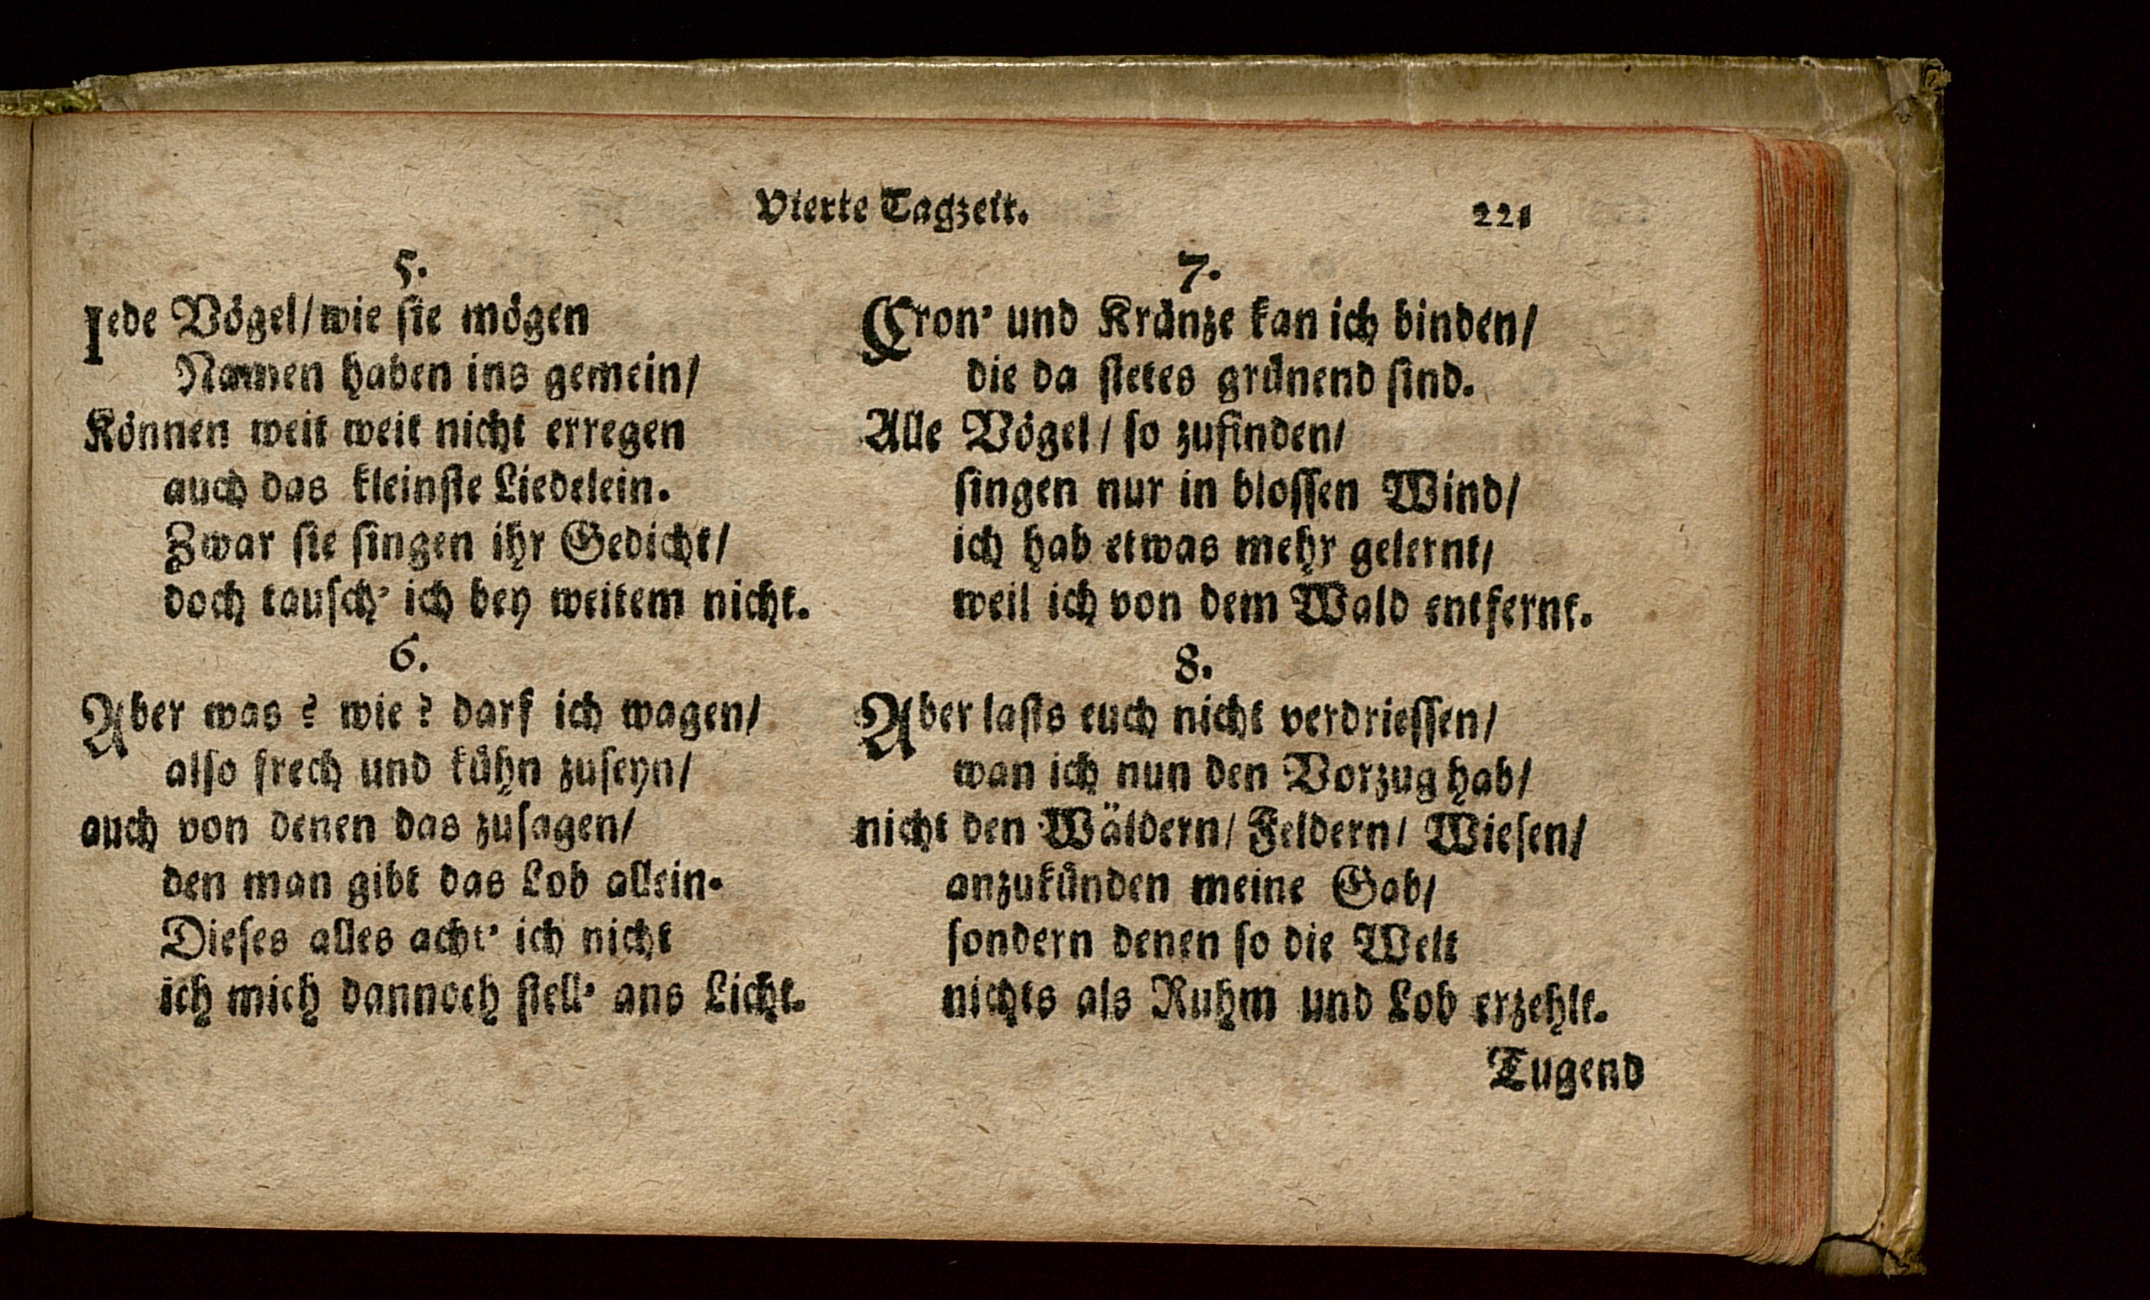 Vierte Tagzeit. 221
5.
Iede Vögel/ wie sie mögen
Namen haben ins gemein/
Können weit weit nicht erregen
auch das kleinste Liedelein.
Zwar sie singen ihr Gedicht/
doch tausch' ich bey weitem nicht.
6.
Aber was? wie? darf ich wagen/
also frech und kühn zuseyn/
auch von denen das zusagen/
den man gibt das Lob allein.
Dieses alles acht' ich nicht
ich mich dannoch stell' ans Licht.
7.
Cron' und Kränze kan ich binden/
die da stetes grünend sind.
Alle Vögel/ so zufinden/
singen nur in blossen Wind/
ich hab etwas mehr gelernt/
weil ich von dem Wald entfernt.
8.
Aber lasts euch nicht verdriessen/
wan ich nun den Vorzug hab/
nicht den Wäldern/ Feldern/ Wiesen/
anzukünden meine Gab/
sondern denen so die Welt
nichts als Ruhm und Lob erzehlt.
Tugend